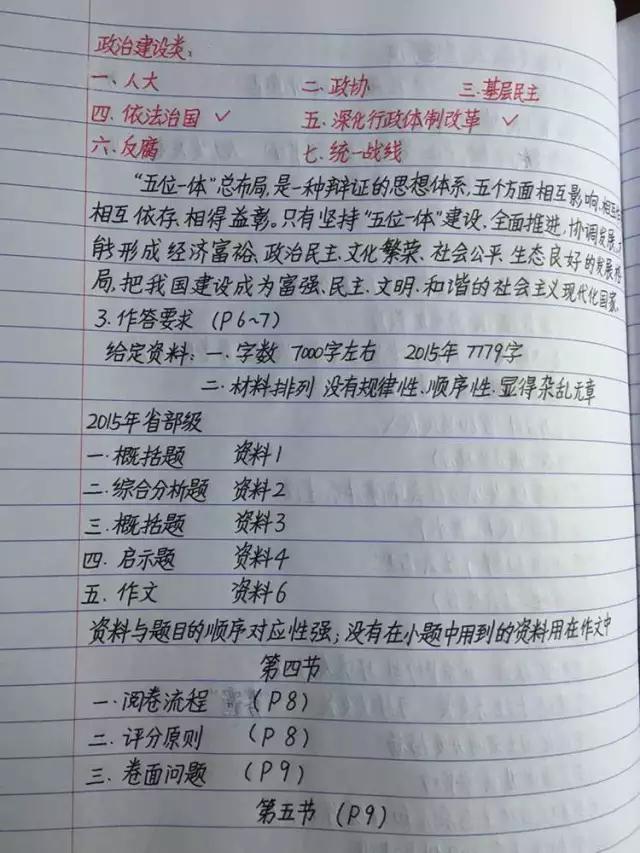 政治建设类:
一、人大 二、政协 三、基层民主
四、依法治国 ✓ 五、深化行政体制改革 ✓
六、反腐 七、统一战线
“五位一体”总布局,是一种辩证的思想体系,五个方面相互影响、相互
相互依存、相得益彰。只有坚持“五位一体”建设、全面推进,协调发展,
能形成经济富裕、政治民主、文化繁荣、社会公平、生态良好的发展格
局,把我国建设成为富强、民主、文明、和谐的社会主义现代化国家。
3. 作答要求 (P6~7)
给定资料: 一、字数 7000字左右 2015年 7779字
二、材料排列 没有规律性、顺序性、显得杂乱无章
2015年省部级
一、概括题 资料1
二、综合分析题 资料2
三、概括题 资料3
四、启示题 资料4
五、作文 资料6
资料与题目的顺序对应性强;没有在小题中用到的资料用在作文中
第四节
一、阅卷流程 (P8)
二、评分原则 (P8)
三、卷面问题 (P9)
第五节 (P9)